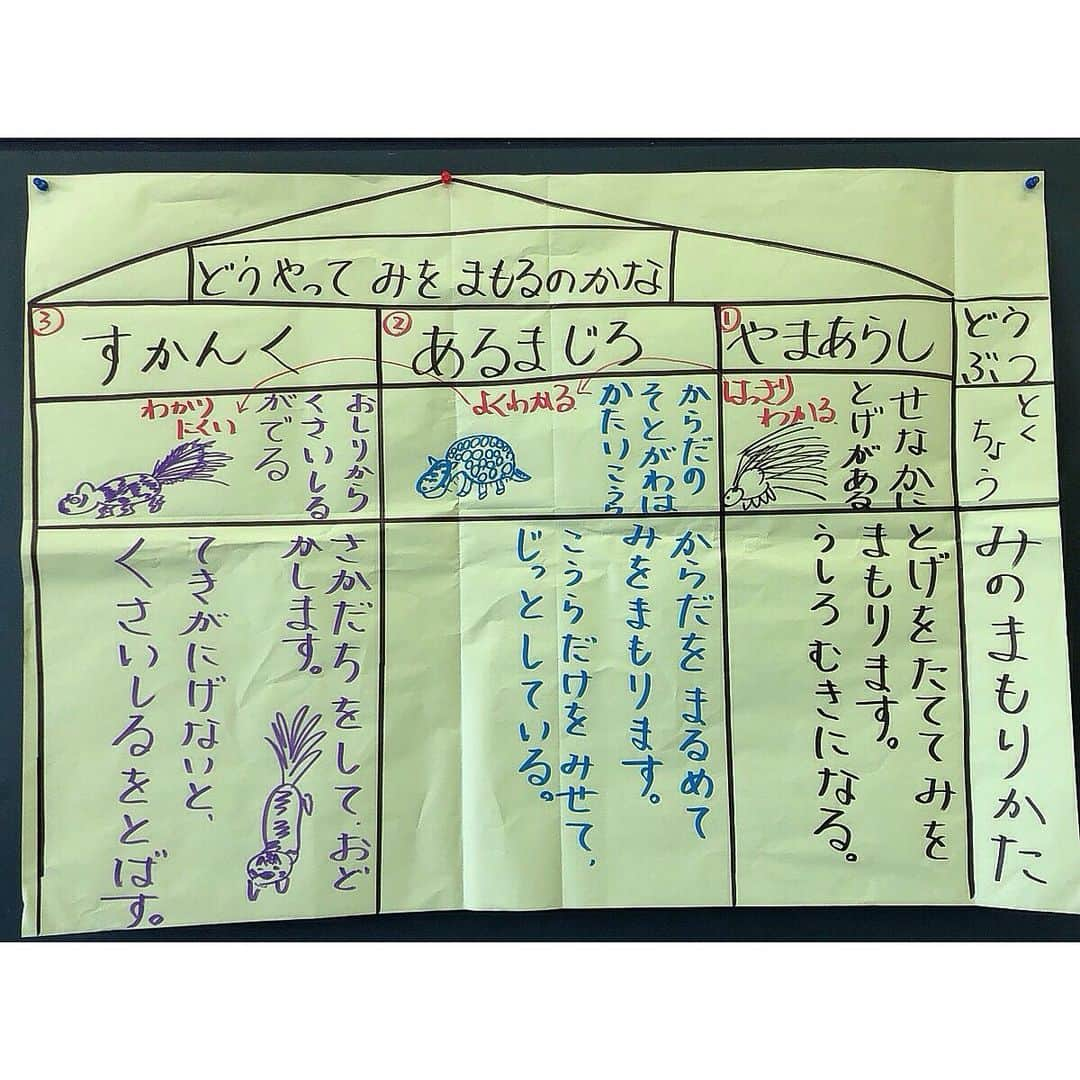 どうやってみをまもるのかな
どうぶつ
とくちょう
みのまもりかた
①
やまあらし
せなかに
とげがある
はっきり
わかる
とげをたててみを
まもります。
うしろむきになる。
②
あるまじろ
からだの
そとがわは
かたいこうら
よくわかる
からだをまるめて
みをまもります。
こうらだけをみせて、
じっとしている。
③
すかんく
おしりから
くさいしる
がでる
わかり
にくい
さかだちをして、おど
かします。
てきがにげないと、
くさいしるをとばす。